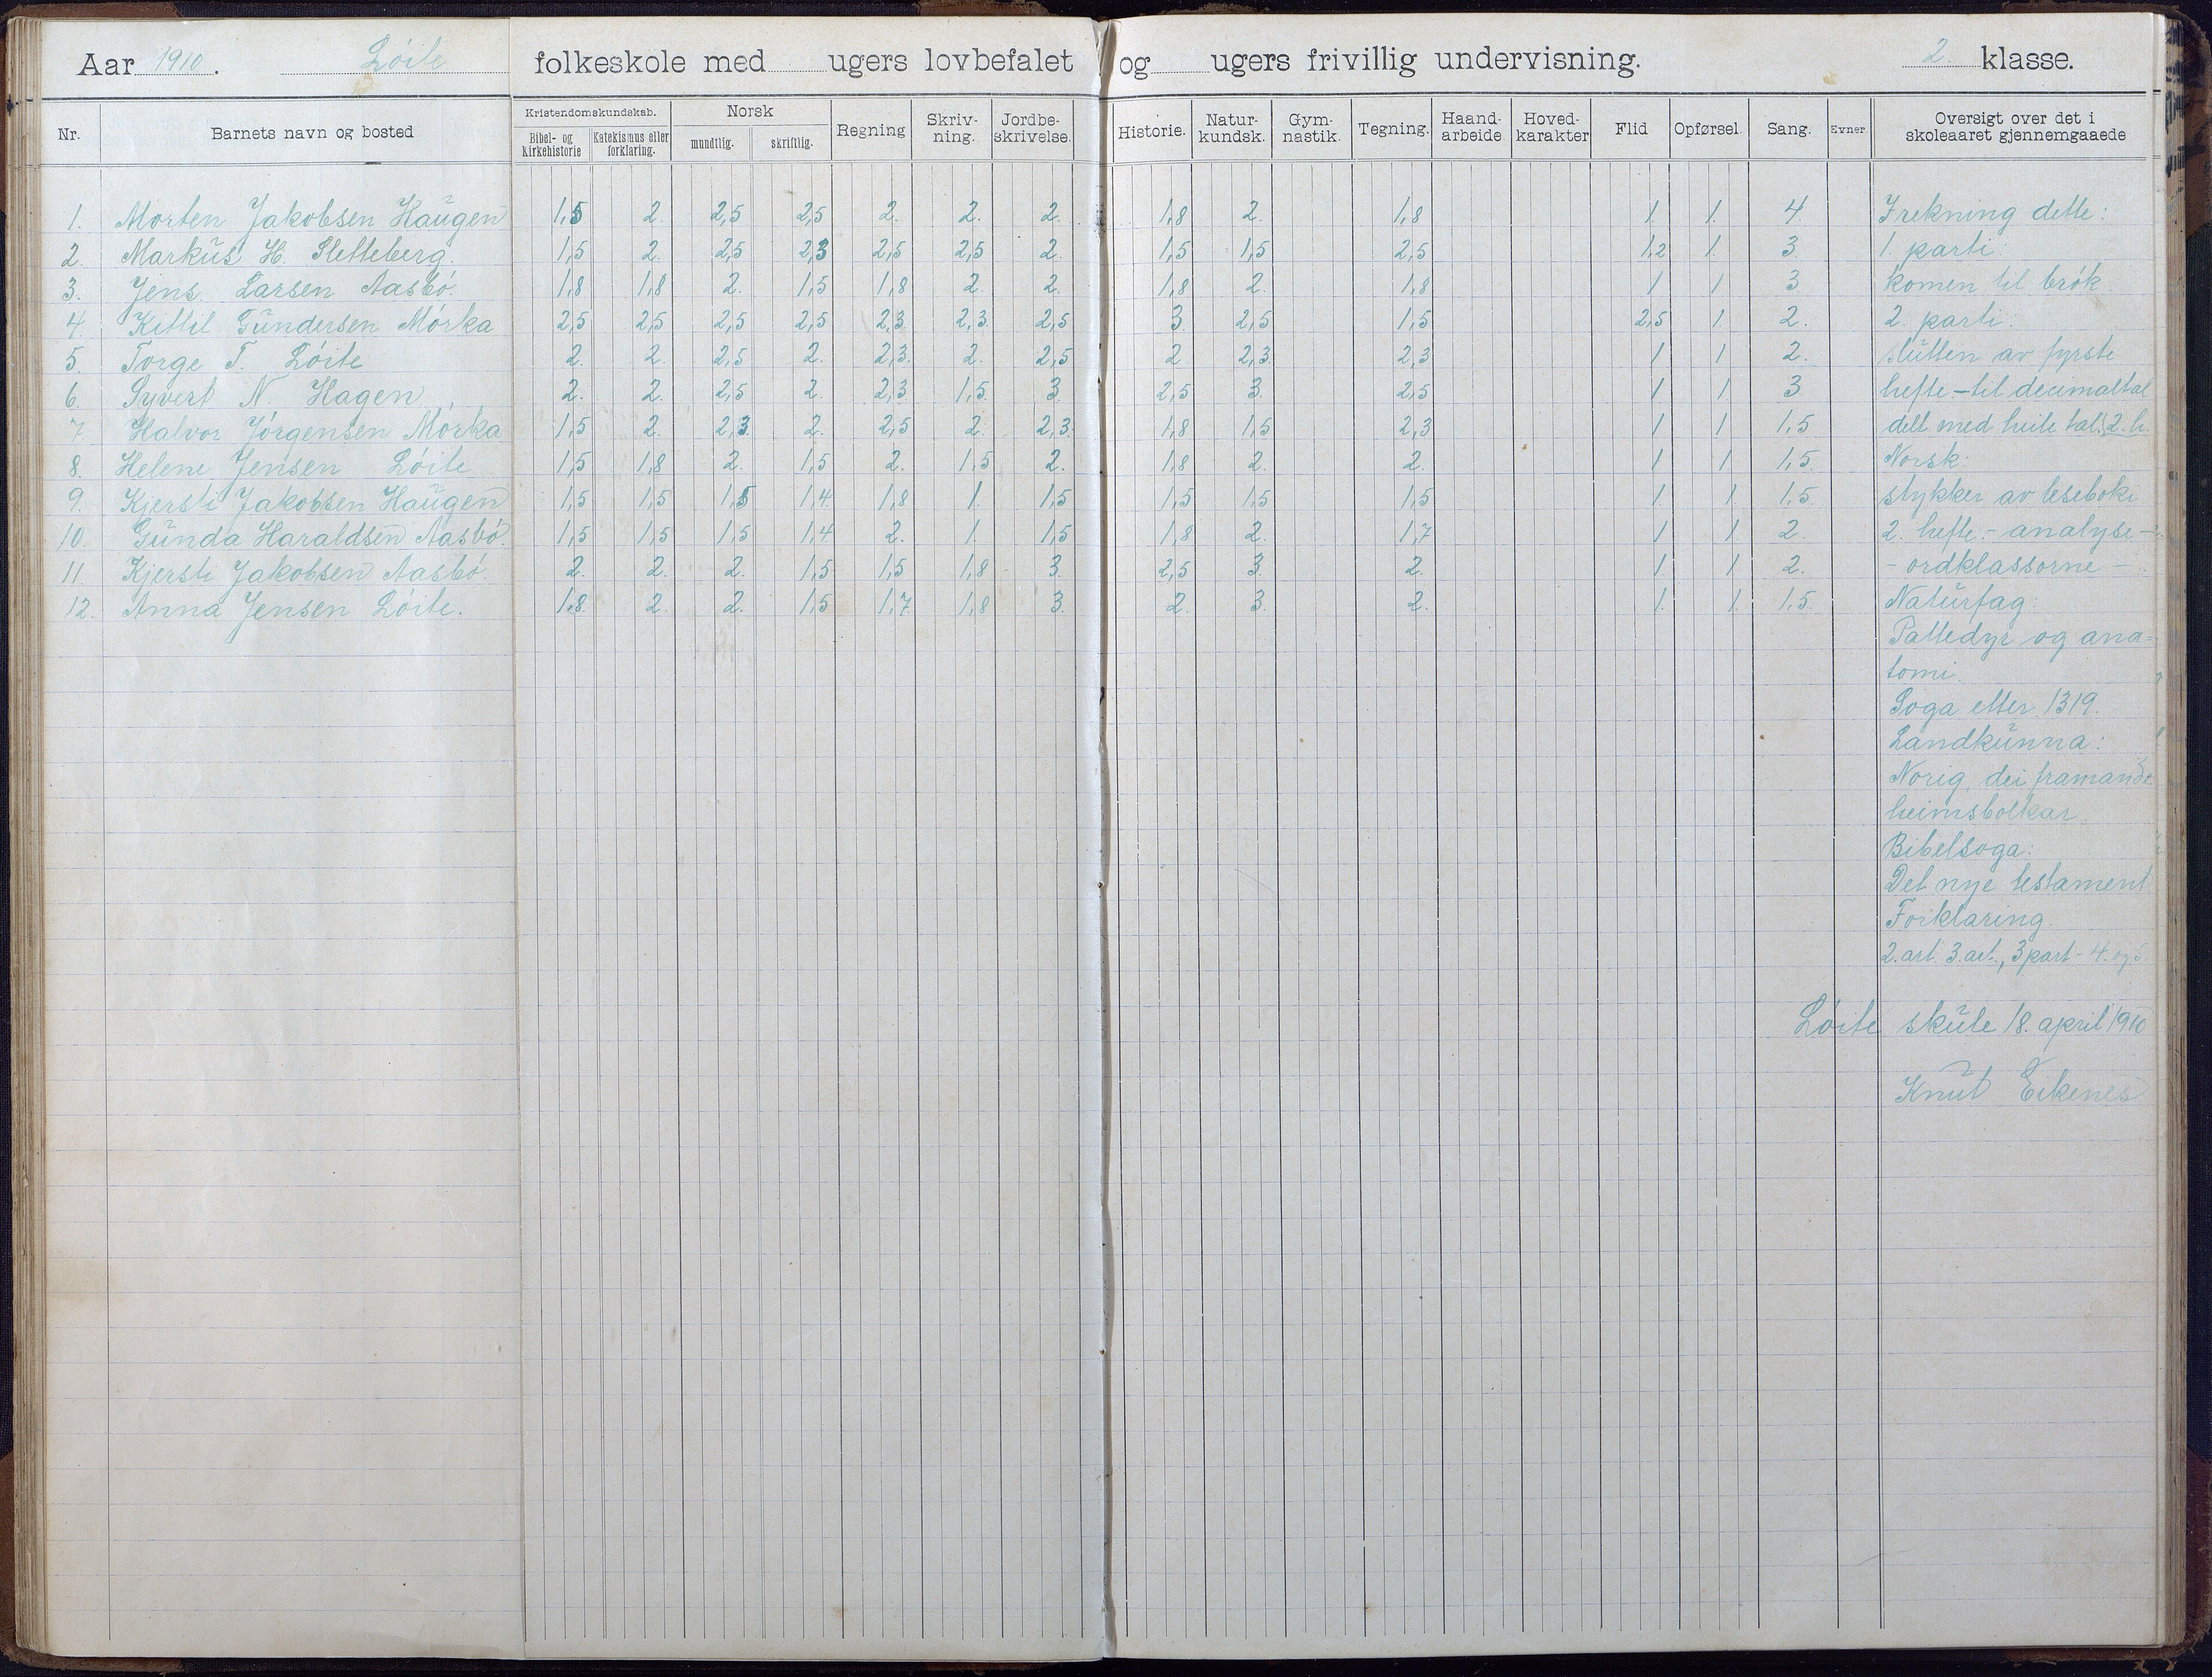 Aar 1910. Löite folkeskole med ugers lovbefalet og ugers frivillig undervisning. 2. klasse.
Nr. Barnets navn og bosted Kristendomskundskab. Bibel- og Kirkehistorie Katekismus eller forklaring. Norsk mundtlig. skriftlig. Regning Skriv-ning. Jordbe-skrivelse. Historie. Natur-kundsk. Gym-nastik. Tegning. Haand-arbeide Hoved-karakter Flid Opførsel. Sang. Evner Oversigt over det i skoleaaret gjennemgaaede
1. Morten Jakobsen Haugen 1,5 2. 2,5 2,5 2. 2. 2. 1,8 2. 1,8 1. 1. 4. I rekning dette:
2. Markus H. Sletteberg. 1,5 2. 2,5 2,3 2,5 2,5 2. 1,5 1,5 2,5 1,2 1. 3 1. parti:
3. Jens Larsen Aasbö. 1,8 1,8 2. 1,5 1,8 2. 2. 1,8 2. 1,8 1 1 3 komen til brök.
4. Kittil Gundersen Mörka 2,5 2,5 2,5 2,5 2,3. 2,3. 2,5 3. 2,5 1,5 2,5 1. 2. 2. parti.
5. Torge T. Löite 2. 2. 2,5 2. 2,3. 2. 2,5 2. 2,3. 2,3 1 1 2. slutten av fyrste
6. Syvert N. Hagen 2. 2. 2,5 2. 2,3 1,5. 3. 2,5 3. 2,5 1 1 3 hefte - til decimaltal
7. Halvor Jörgensen Mörka 1,5 2. 2,3. 2. 2,5 2. 2,3. 1,8 1,5 2,3 1 1 1,5 delt med heile tal. 2. h.
8. Helene Jensen Löite 1,5 1,8 2. 1,5 2. 1,5. 2. 1,8 2. 2. 1 1 1,5. Norsk:
9. Kjersti Jakobsen Haugen 1,5 1,5 1,5 1,4. 1,8 1. 1,5 1,5 1,5 1,5 1. 1. 1,5. stykker av leseboki
10. Gunda Haraldsen Aasbö. 1,5 1,5 1,5 1,4. 2. 1. 1,5 1,8 2. 1,7 1 1. 2. 2. hefte. - analyse -
11. Kjersti Jakobsen Aasbö. 2. 2. 2. 1,5 1,5 1,8 3. 2,5 3. 2. 1 1 2. - ordklassorne -
12. Anna Jensen Löite. 1,8. 2. 2. 1,5 1,7 1,8 3. 2. 3. 2. 1. 1. 1,5. Naturfag:
Pattedyr og ana=
tomi.
Soga etter 1319.
Landkunna:
Norig, dei framande
heimsbolkar.
Bibelsoga:
Det nye testament
Forklaring.
2. art. 3. art., 3 part - 4. og 5.
Löite skule 18. april 1910
Knut Eikenes